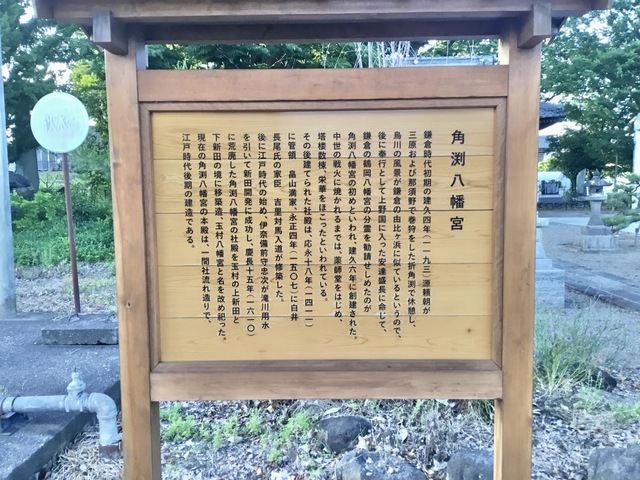 角渕八幡宮
鎌倉時代初期の建久四年(一一九三)源頼朝が
三原および那須野で巻狩をした折角渕で休憩し、
烏川の風景が鎌倉の由比ヶ浜に似ているというので、
後に奉行として上野国に入った安達盛長に命じて、
鎌倉の鶴岡八幡宮の分霊を勧請せしめたのが
角渕八幡宮の初めといわれ、建久六年に創建された。
中世の戦火に焼かれるまでは、薬師堂をはじめ、
塔楼数棟、栄華をほこったといわれている。
その後建てられた社殿は、応永十八年(一四一一)
に管領 畠山満家、永正四年(一五〇七)に白井
長尾氏の家臣 吉里対馬入道が修築した。
後に江戸時代の始め、伊奈備前守忠次が滝川用水
を引いて新田開発に成功し、慶長十五年(一六一〇)
に荒廃した角渕八幡宮の社殿を玉村の上新田と
下新田の境に移築造、玉村八幡宮と名を改め祀った。
現在の角渕八幡宮の本殿は、一間社流れ造りで、
江戸時代後期の建造である。